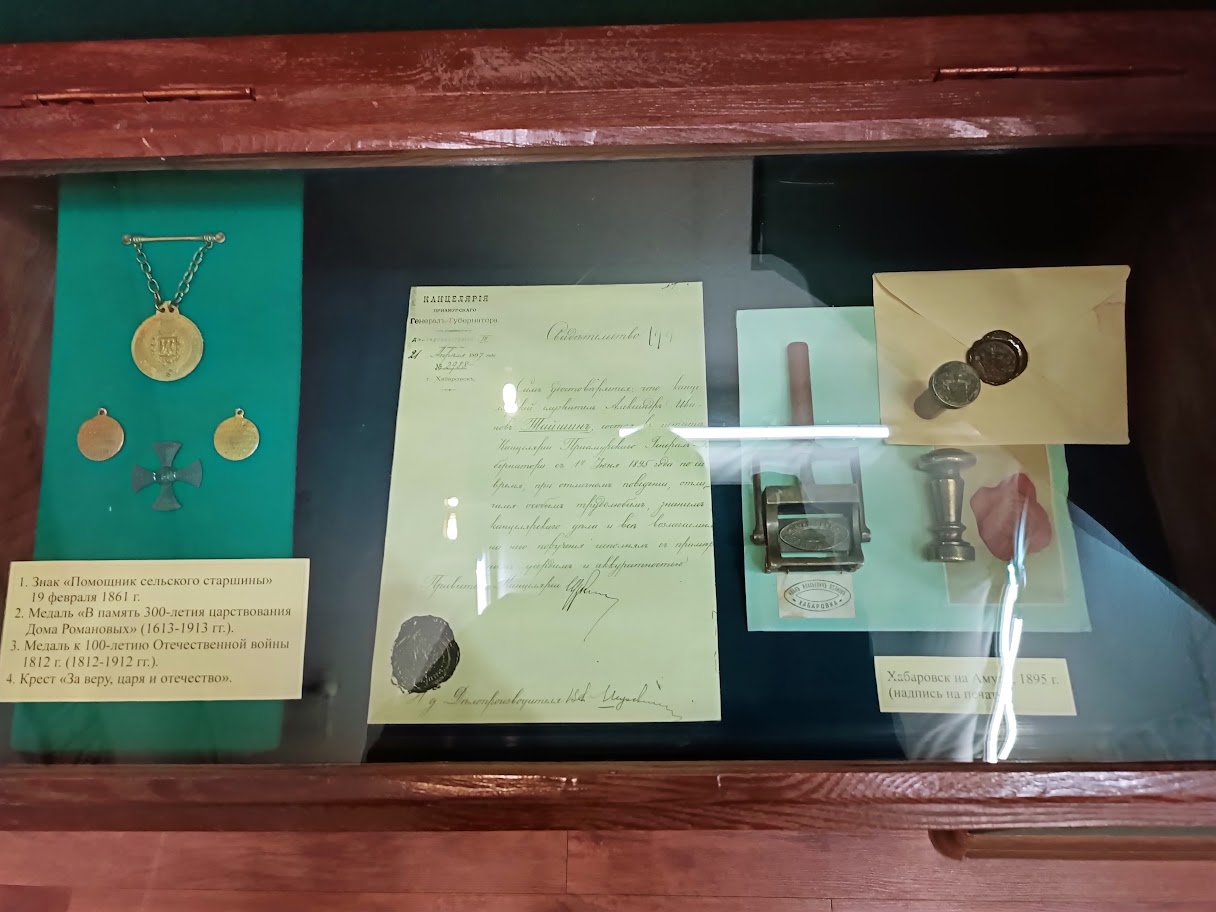 1. Знак «Помощник сельского старшины»
19 февраля 1861 г.
2. Медаль «В память 300-летия царствования
Дома Романовых» (1613-1913 гг.).
3. Медаль к 100-летию Отечественной войны
1812 г. (1812-1912 гг.).
4. Крест «За веру, царя и отечество».
КАНЦЕЛЯРІЯ
ПРИАМУРСКАГО
Генералъ-Губернатора
21 Апрѣля 1897
№ 2928
г. Хабаровскъ.
Свидѣтельство
Симъ удостовѣряется, что
служитель Александръ
Тайшинъ,
Канцеляріи Приамурскаго Генералъ-
бернатора съ 1го Іюня 1895 года по
время, при отличномъ поведеніи,
особымъ трудолюбіемъ, знаніемъ
канцелярскаго дѣла и всѣ возлагаемыя
на него порученія исполнялъ съ
и аккуратностью.
Правитель Канцеляріи
Дѣлопроизводителя
ХАБАРОВКА
Хабаровск на Амуре, 1895 г.
(надпись на